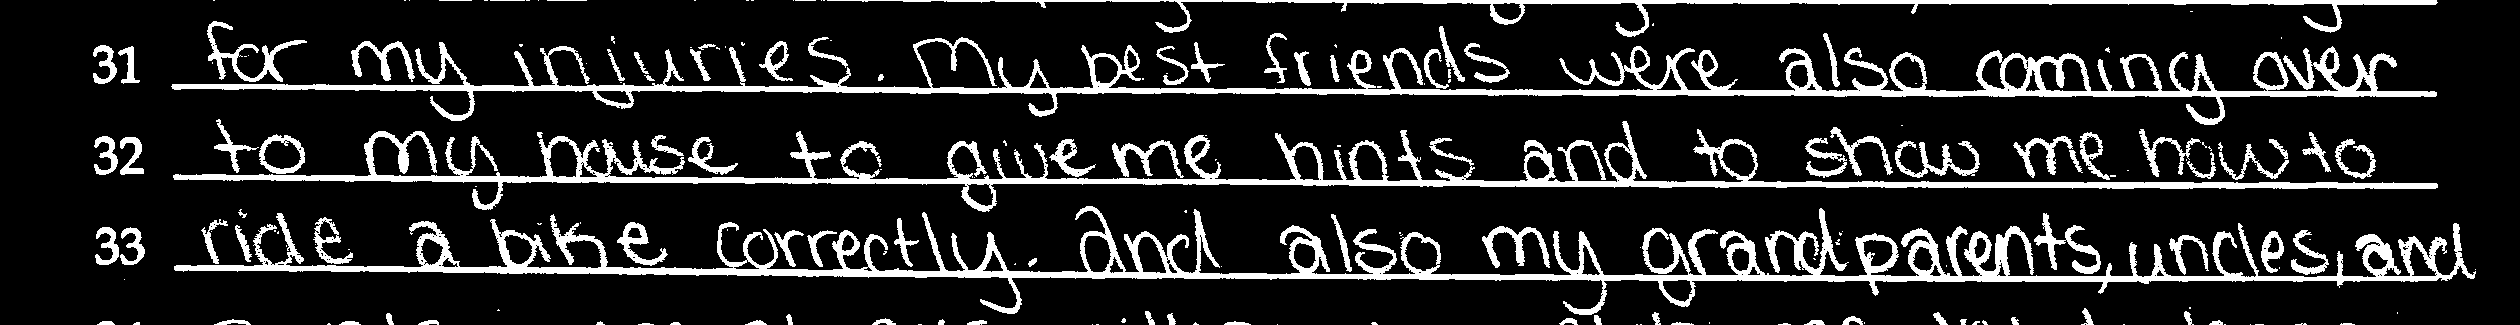 31 for my injuries. My best friends were also coming over
32 to my house to give me hints and to show me how to
33 ride a bike correctly. And also my grandparents, uncles, and